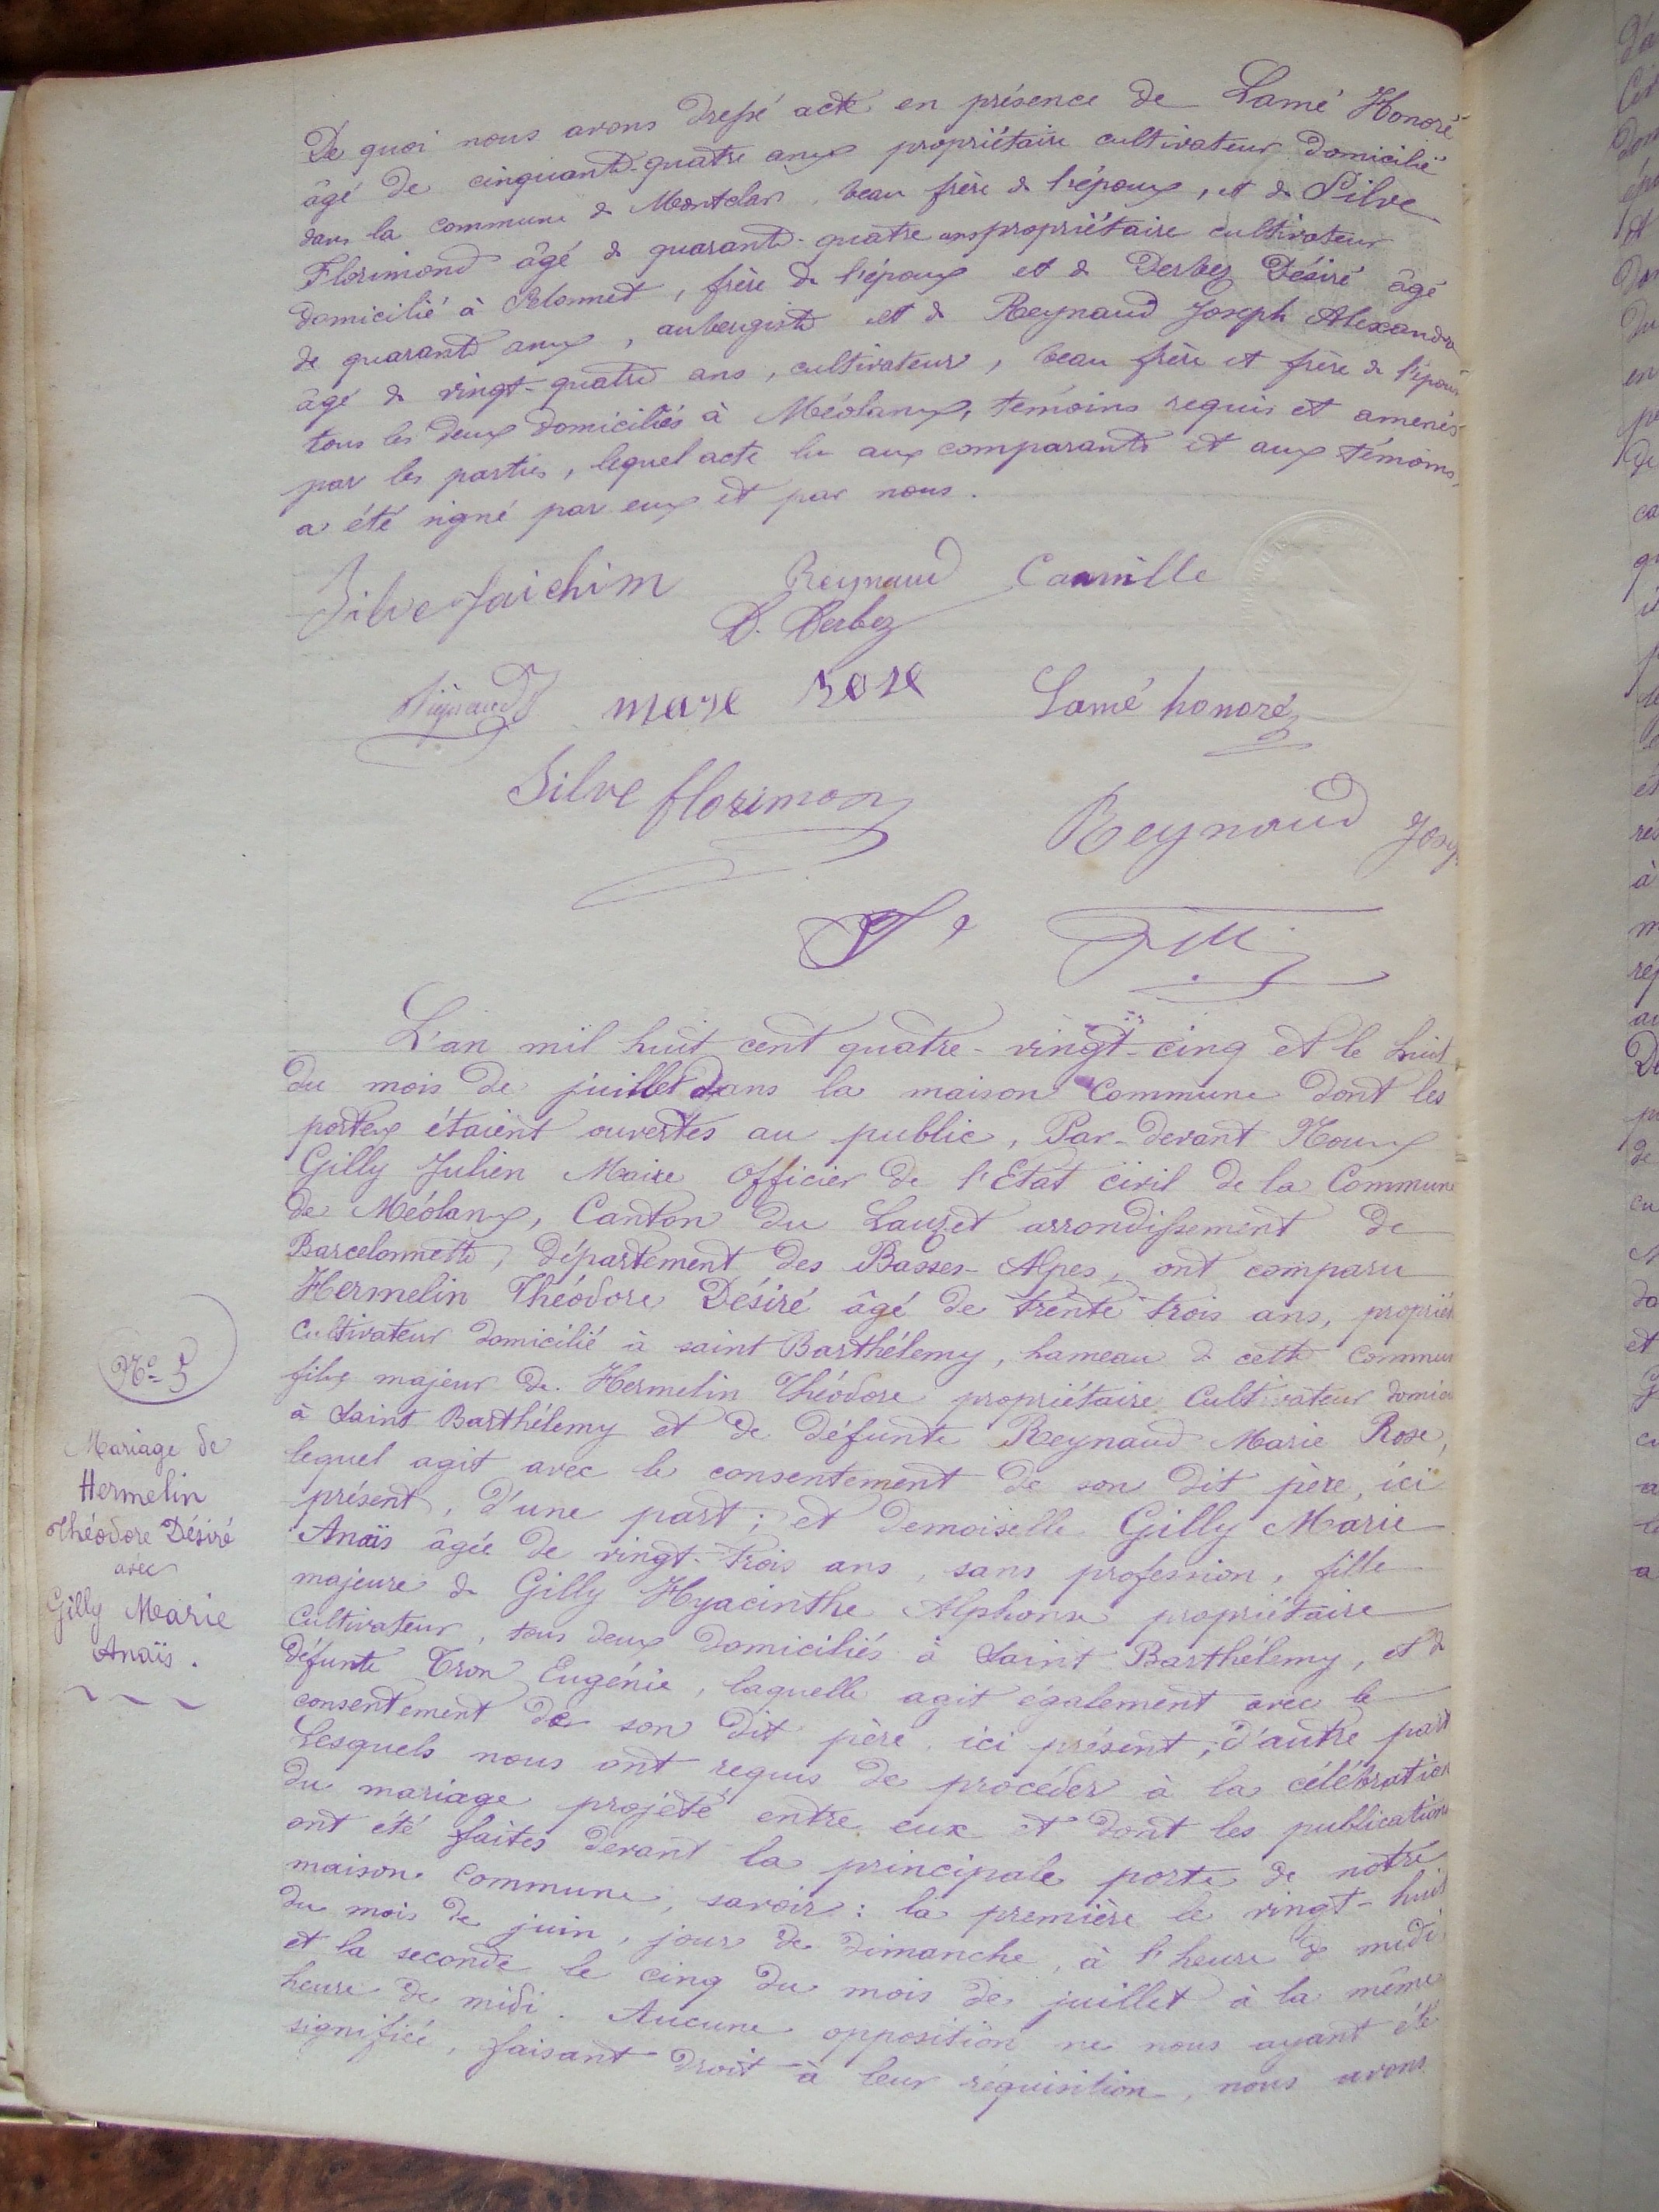 De quoi nous avons dressé acte en présence de Lamé Honoré
âgé de cinquante-quatre ans propriétaire cultivateur domicilié
dans la commune de Montclar, beau frère de l'époux, et de Silve
Florimond âgé de quarante-quatre ans propriétaire cultivateur
domicilié à Selonnet, frère de l'époux et de Derbez Désiré âgé
de quarante ans, aubergiste et de Reynaud Joseph Alexandre
âgé de vingt-quatre ans, cultivateur, beau frère et frère de l'épouse
tous les deux domiciliés à Méolans, témoins requis et amenés
par les parties, lequel acte lu aux comparants et aux témoins,
a été signé par eux et par nous.
Silve Jaichim Reynaud Camille
D. Derbez
mare rose Lamé honoré
Silve florimon
Reynaud
L'an mil huit cent quatre-vingt-cinq et le huit
du mois de juillet dans la maison Commune dont les
portes étaient ouvertes au public, Par-devant Nous
Gilly Julien Maire officier de l'Etat civil de la Commune
de Méolans, Canton du Lauzet arrondissement de
Barcelonnette, département des Basses-Alpes, ont comparu
Hermelin Théodore Désiré âgé de trente trois ans, propriét
cultivateur domicilié à saint Barthélemy, hameau de cette commun
fils majeur de Hermelin Théodore propriétaire Cultivateur domici
à Saint Barthélemy et de défunte Reynaud Marie Rose,
lequel agit avec le consentement de son dit père, ici
présent, d'une part; et demoiselle Gilly Marie
Anaïs âgée de vingt-trois ans, sans profession, fille
majeure de Gilly Hyacinthe Alphonse propriétaire
Cultivateur, tous deux domiciliés à Saint Barthélemy, et de
défunte Tron Eugénie, laquelle agit également avec le
consentement de son dit père, ici présent, d'autre part
Lesquels nous ont requis de procéder à la célébration
du mariage projeté entre eux et dont les publications
ont été faites devant la principale porte de notre
maison commune, savoir: la première le vingt-huit
du mois de juin, jour de dimanche, à l'heure de midi
et la seconde le cinq du mois de juillet à la même
heure de midi. Aucune opposition ne nous ayant été
signifiée, faisant droit à leur réquisition, nous avons
N° 5
Mariage de
Hermelin
Théodore Désiré
avec
Gilly Marie
Anaïs.